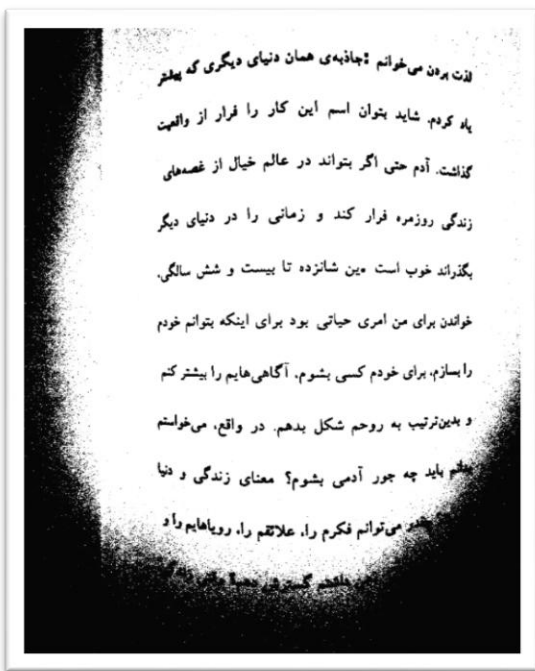 لذت بردن می‌خوانم :جاذبه‌ی همان دنیای دیگری که پیشتر
یاد کردم. شاید بتوان اسم این کار را فرار از واقعیت
گذاشت. آدم حتی اگر بتواند در عالم خیال از غصه‌های
زندگی روزمره فرار کند و زمانی را در دنیای دیگر
بگذراند خوب است .بین شانزده تا بیست و شش سالگی،
خواندن برای من امری حیاتی بود برای اینکه بتوانم خودم
را بسازم، برای خودم کسی بشوم. آگاهی‌هایم را بیشتر کنم
و بدین‌ترتیب به روحم شکل بدهم. در واقع، می‌خواستم
بدانم باید چه جور آدمی بشوم؟ معنای زندگی و دنیا
می‌توانم فکرم را، علائقم را، رویاهایم را و